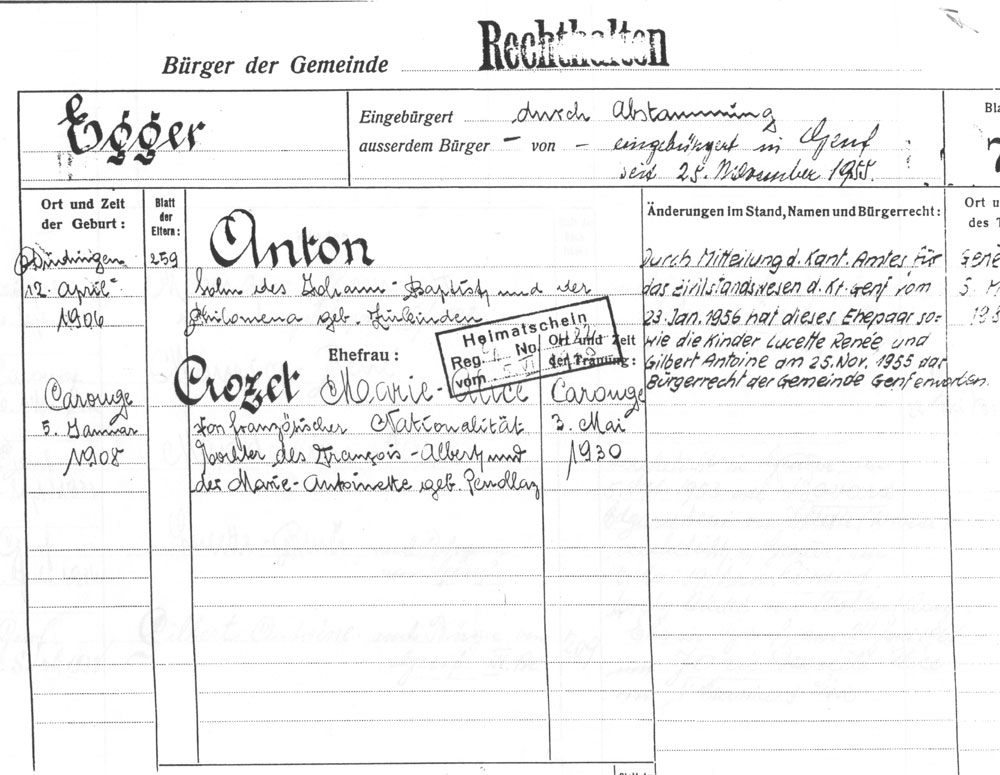 Bürger der Gemeinde Rechthalten
Egger
Eingebürgert durch Abstammung
ausserdem Bürger – von – eingebürgert in Genf
seit 25. November 1955.
Bla
7
Ort und Zeit
der Geburt:
Blatt
der
Eltern:
Änderungen im Stand, Namen und Bürgerrecht:
Ort u
des T
Düdingen
12. April
1906
259
Anton
Sohn des Johann-Baptist und der
Philomena geb. Zurkinden
Heimatschein
Reg. No.
vom 5. VI
Ehefrau:
Ort und Zeit
der Trauung:
Crozet Marie-Alice
von französischer Nationalität
Tochter des François-Albert und
der Marie-Antoinette geb. Pendlaz
Carouge
5. Januar
1908
Carouge
3. Mai
1930
Durch Mitteilung d. Kant. Amtes für
das Zivilstandswesen d. Kt. Genf vom
23. Jan. 1956 hat dieses Ehepaar so-
wie die Kinder Lucette Renée und
Gilbert Antoine am 25. Nov. 1955 das
Bürgerrecht der Gemeinde Genf erworben.
Gene
5. M